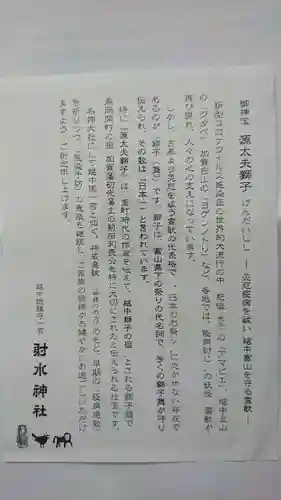 御神宝 源太夫獅子 げんだいしし ― 災厄疫病を祓い 越中富山を守る霊獣 ―
新型コロナウイルス感染症の世界的大流行の中、肥後 の「アマビエ」、越中立山
の「クタベ」、加賀白山の「ヨゲンノトリ」など、各地では、疫病封じの妖怪・霊獣が
再び現れ、人々の心の支えになっています。
しかし、古来より災厄を祓う霊獣の代表格で、日本のお祭りに欠かせない存在で
あるのが「獅子(舞)」です。獅子は、富山県下の祭りの代名詞で、多くの獅子舞が守り
伝えられ、その数は「日本一」と言われています。
特に「源太夫獅子」は、室町時代の作風を伝えて、越中獅子の祖 とされる獅子頭で
高岡開町の祖 加賀藩初代藩主の前田利長公も特に大切にされたと伝えられる社宝です。
名神大社にして越中国一宮と仰ぐ、神威無窮 のもと、早期の「疫病退散」
を祈りつつ、「感染予防」の意識を継続し、ご家族の皆様がお健やかにお過ごしいただけ
ますよう、ご祈念申し上げます。
越中総鎮守一宮
射水神社